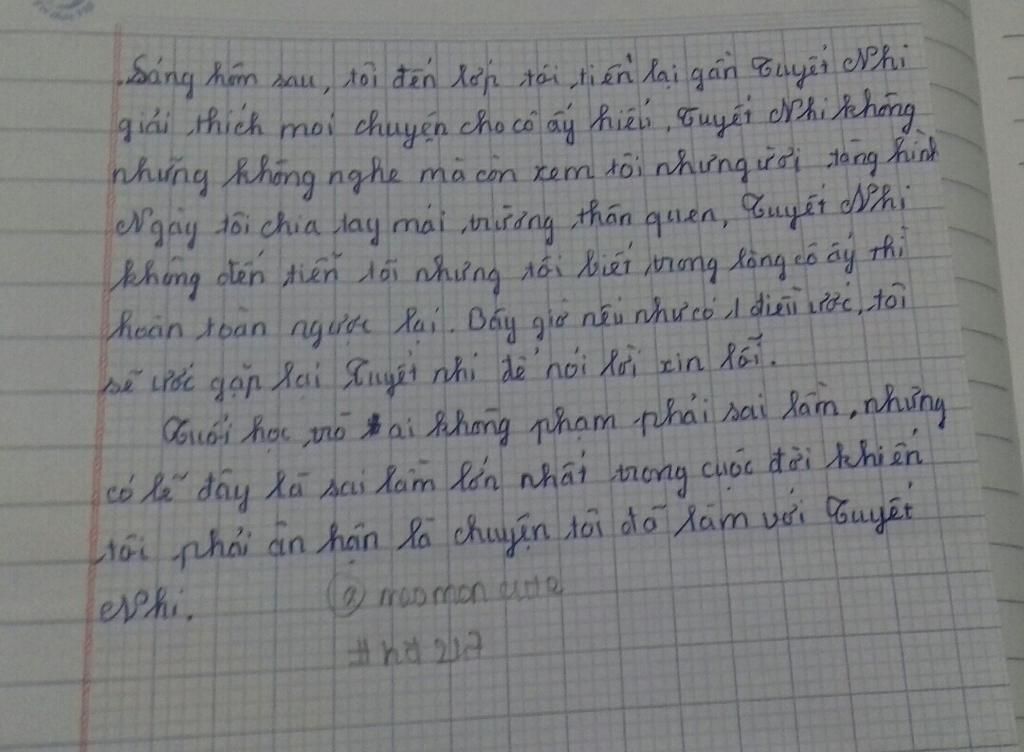 Sáng hôm sau, tôi đến lớp tới, tiến lại gần Tuyết Nhi
giải thích mọi chuyện cho cô ấy hiểu, Tuyết Nhi không
những không nghe mà còn xem tôi như người tàng hình
Ngày tôi chia tay mái trường thân quen, Tuyết Nhi
không đến tiễn tôi nhưng tôi biết trong lòng cô ấy thì
hoàn toàn ngược lại. Bây giờ nếu như có 1 điều ước, tôi
sẽ ước gặp lại Tuyết nhi để nói lời xin lỗi.
Tuổi học trò ai không phạm phải sai lầm, nhưng
có lẽ đây là sai lầm lớn nhất trong cuộc đời khiến
tôi phải ân hận là chuyện tôi đã làm với Tuyết
Nhi.